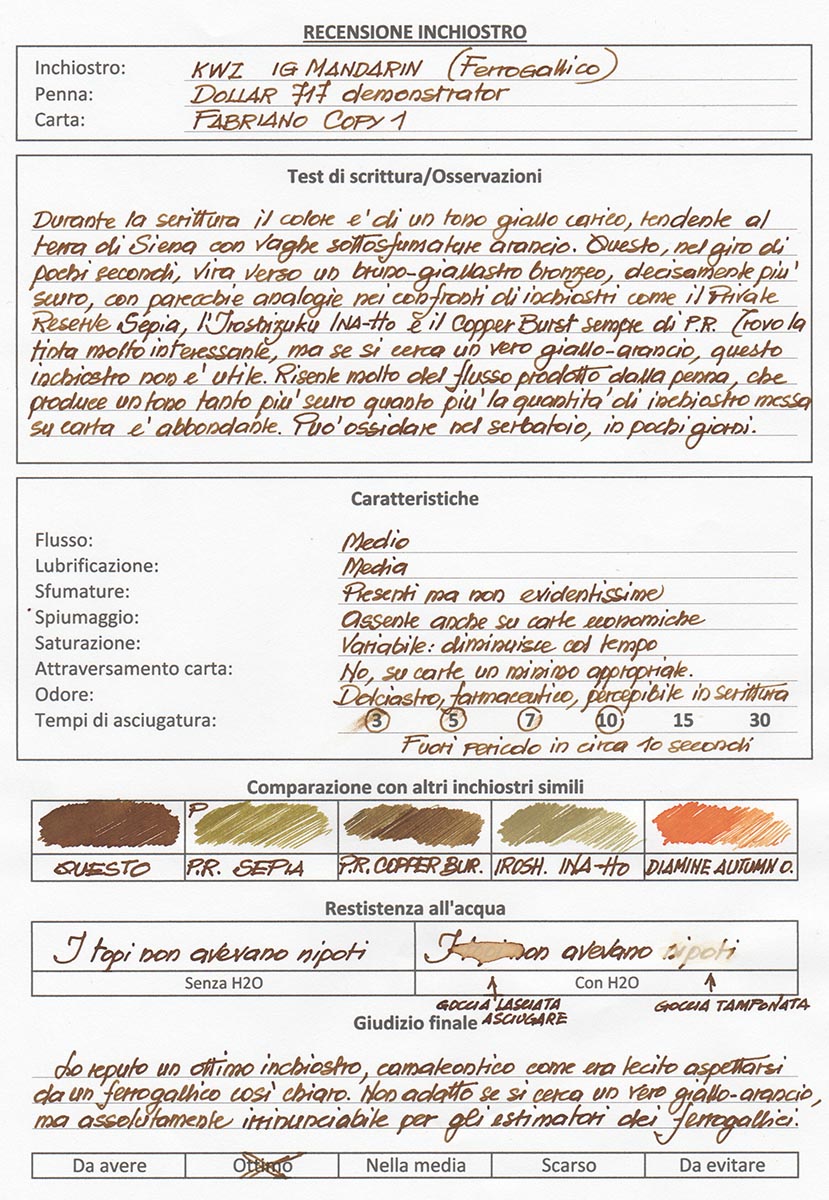 RECENSIONE INCHIOSTRO
Inchiostro: KWZ IG MANDARIN (Ferrogallico)
Penna: DOLLAR 717 demonstrator
Carta: FABRIANO COPY 1
Test di scrittura/Osservazioni
Durante la scrittura il colore e' di un tono giallo carico, tendente al
terra di Siena con vaghe sottosfumature arancio. Questo, nel giro di
pochi secondi, vira verso un bruno-giallastro bronzeo, decisamente piu'
scuro, con parecchie analogie nei confronti di inchiostri come il Private
Reserve Sepia, l'Iroshizuku INA-HO e il Copper Burst sempre di P.R. Trovo la
tinta molto interessante, ma se si cerca un vero giallo-arancio, questo
inchiostro non e' utile. Risente molto del flusso prodotto dalla penna, che
produce un tono tanto piu' scuro quanto piu' la quantita' di inchiostro messa
su carta e' abbondante. Puo' ossidare nel serbatoio, in pochi giorni.
Caratteristiche
Flusso: Medio
Lubrificazione: Media
Sfumature: Presenti ma non evidentissime
Spiumaggio: Assente anche su carte economiche
Saturazione: Variabile: diminuisce col tempo
Attraversamento carta: No, su carte un minimo appropriate.
Odore: Dolciastro, farmaceutico, percepibile in scrittura
Tempi di asciugatura: 3 5 7 10 15 30
Fuori pericolo in circa 10 secondi
Comparazione con altri inchiostri simili
P
QUESTO P.R. SEPIA P.R. COPPER BUR. IROSH. INA-HO DIAMINE AUTUMN O.
Restistenza all'acqua
I topi non avevano nipoti I topi non avevano nipoti
Senza H2O Con H2O
GOCCIA LASCIATA ASCIUGARE GOCCIA TAMPONATA
Giudizio finale
Lo reputo un ottimo inchiostro, camaleontico come era lecito aspettarsi
da un ferrogallico così chiaro. Non adatto se si cerca un vero giallo-arancio,
ma assolutamente irrinunciabile per gli estimatori dei ferrogallici.
Da avere Ottimo Nella media Scarso Da evitare